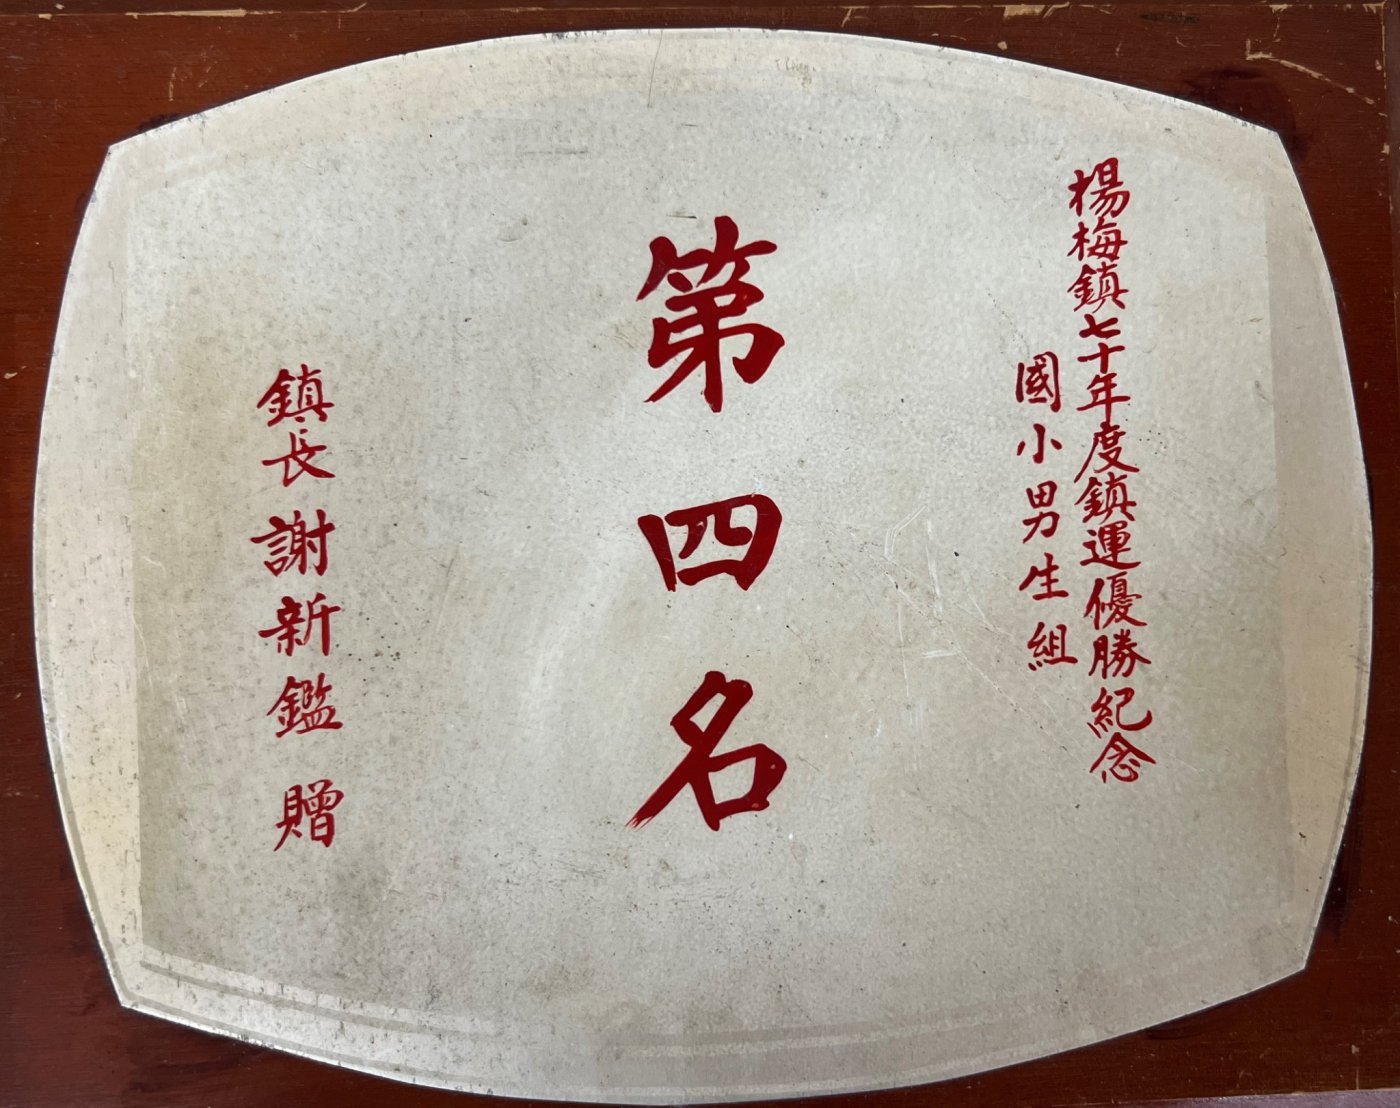 楊梅鎮七十年度鎮運優勝紀念
國小男生組
第四名
鎮長謝新鑑贈